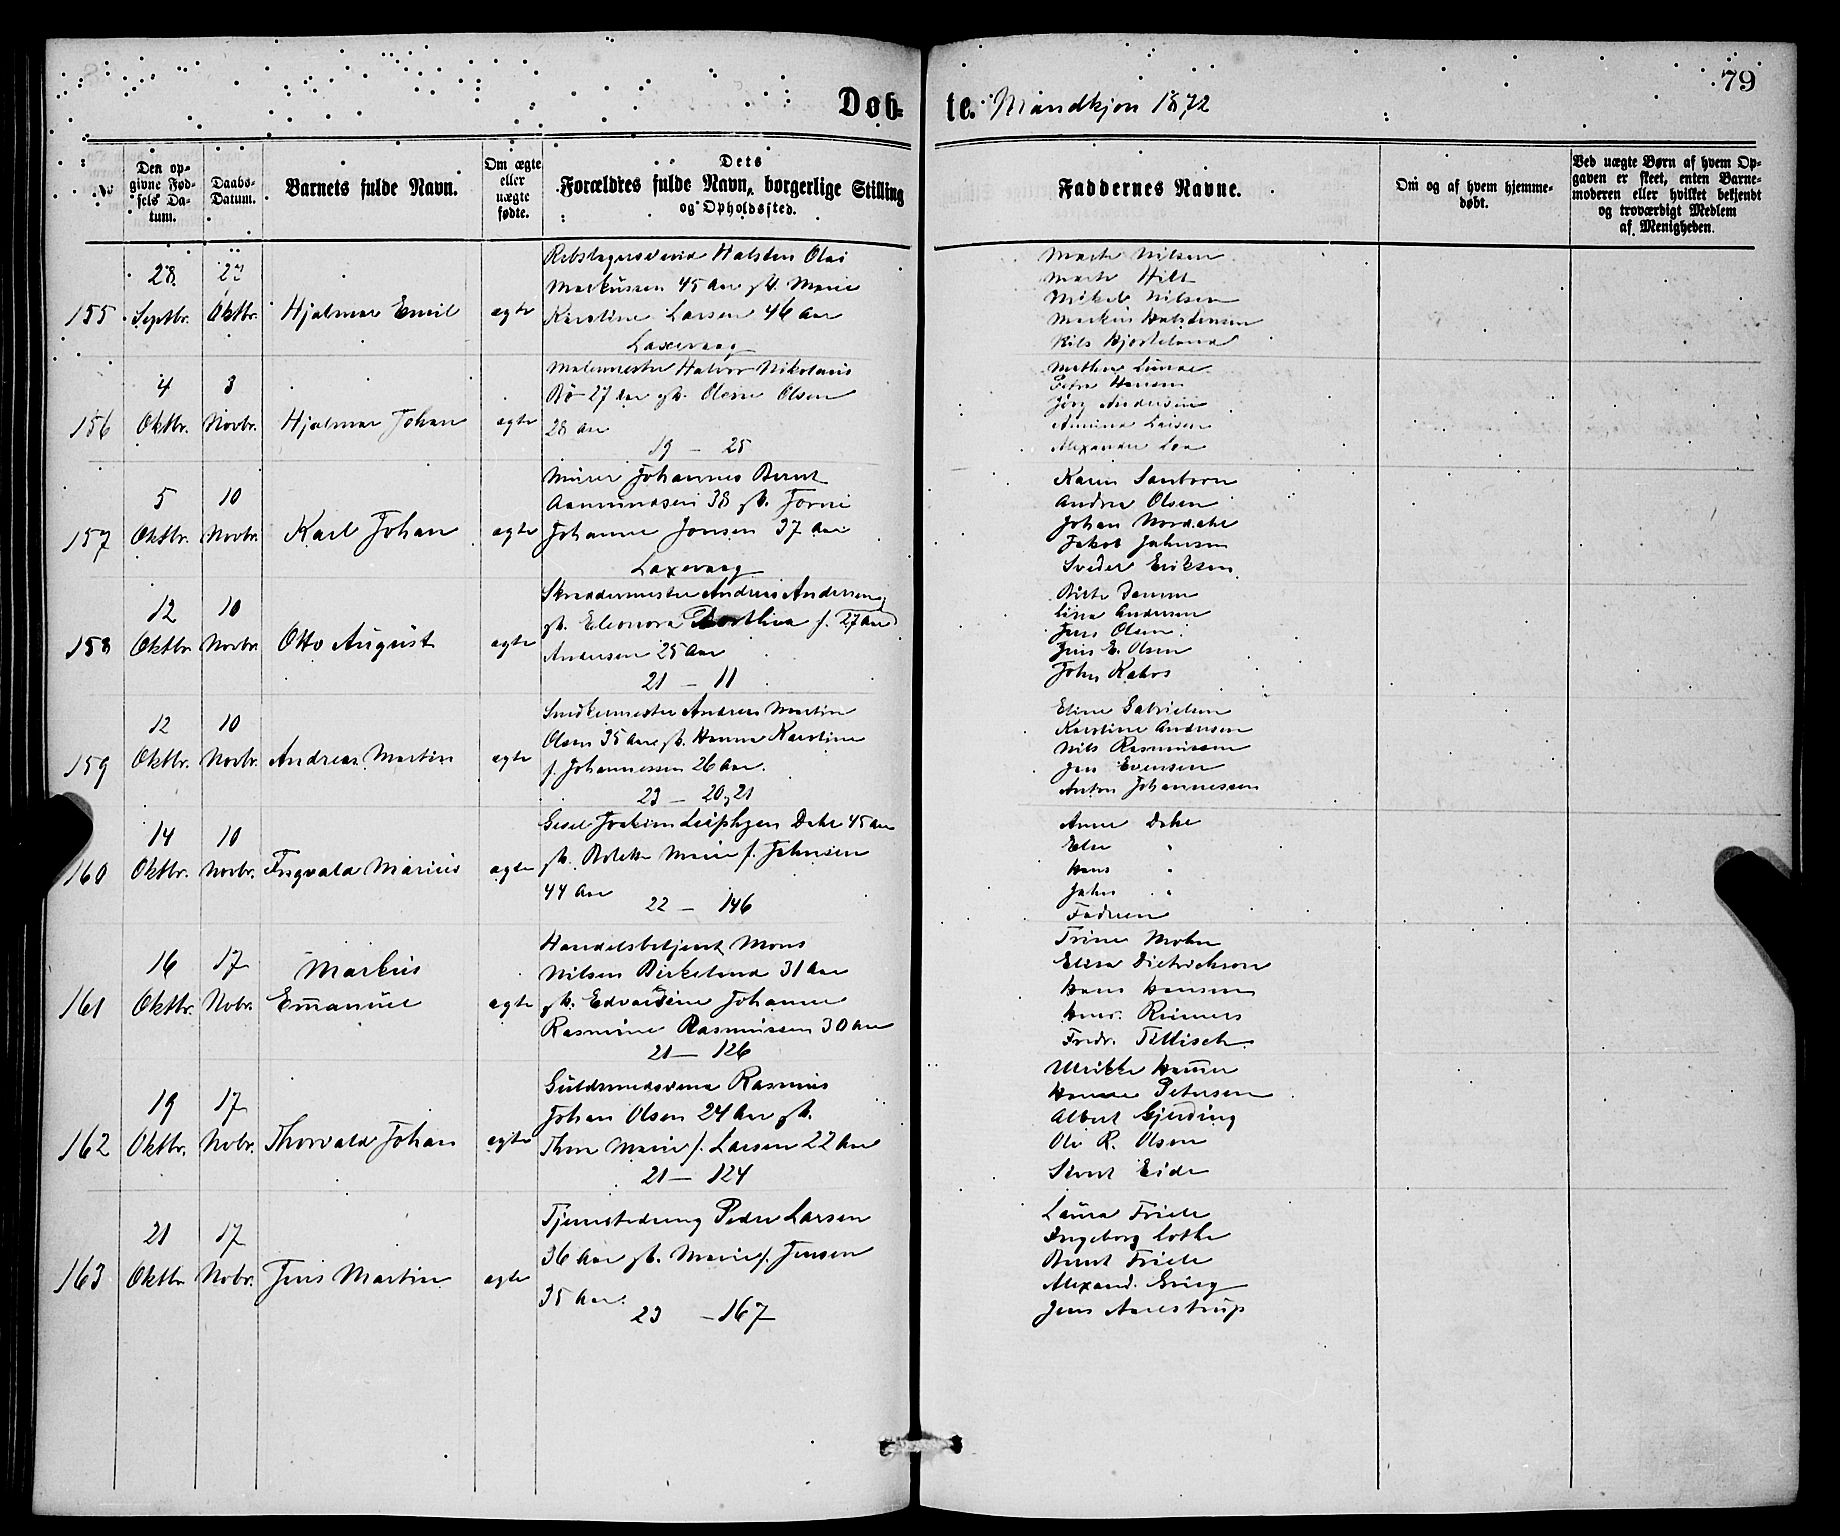 79
Døb- te. Mandkjøn 1872
No
Den opgivne Fødsels Datum.
Daabs-Datum.
Barnets fulde Navn.
Om ægte eller uægte fødte.
Dets Forældres fulde Navn, borgerlige Stilling og Opholdssted.
Faddernes Navne.
Om og af hvem hjemmedøbt.
Ved uægte Børn af hvem Opgaven er skeet, enten Barnemoderen eller hvilket bekjendt og troværdigt Medlem af Menigheden.
155
28 Septbr.
27 Oktbr.
Hjalmar Emil
ægte
Halsten Olai
Markussen 45 Aar gt. Marie
Karoline Larsen 46 Aar
Laxevaag
Marte Nilsen
Marte Hilt
Mikal Nilsen
Markus Halstensen
Nils
156
4 Oktbr.
3 Novbr.
Hjalmar Johan
ægte
Malermester Halvor Nikolaus
Bø 27 Aar gt. Olesine Olsen
28 Aar
19 — 25
Mathea Lunde
Petra Hansen
Jørg Andersen
Amina Larsen
Alexander
157
5 Oktbr.
10 Novbr.
Karl Johan
ægte
Murer Johannes Bernt
Aamundsen 38 gt.
Johanne Jonsen 37 Aar
Laxevaag
Karen Sanborn
Andrea Olsen
Johan
Jakob Johnsen
Sveder Eriksen
158
12 Oktbr.
10 Novbr.
Otto August
ægte
Skræddermester Andreas Andersen
gt. Eleonora Dorthea f. 27 Aar
Andersen 25 Aar
21 — 11
Birte Damm
Lina Andersen
Jens Olsen
Jens E. Olsen
John Kahrs
159
12 Oktbr.
10 Novbr.
Andreas Martin
ægte
Snedkermester Andreas Martin
Olsen 35 Aar gt. Hanna Karoline
f. Johannessen 26 Aar.
23 — 20, 21
Eline Gabrielsen
Karoline Andersen
Nils Rasmussen
Jens Evensen
Anton Johannessen
160
14 Oktbr.
10 Novbr.
Ingvald Marius
ægte
Joakim Dahl 45 Aar
gt. Bolette Marie f. Johnsen
44 Aar
22 — 146
Anne Dahl
Else "
Hans "
John "
Faderen
161
16 Oktbr.
17 Nobr.
Markus
Emanuel
ægte
Handelsbetjent Mons
Nilsen Birkeland 31 Aar
gt. Edvardine Johanne
Rasmine Rasmussen 30 Aar
21 — 126
Trine Mohn
Elisa Dietrichson
Hans Hansen
Henr. Reimers
Fredr.
162
19 Oktbr.
17 Nobr.
Thorvald Johan
ægte
Guldsmedsvend Rasmus
Johan Olsen 24 Aar gt.
Thea Marie f. Larsen 22 Aar
21 — 124
Ulrikke Hansen
Hanna Petersen
Albert Gjerding
Ole R. Olsen
Sivert Eide
163
21 Oktbr.
17 Nobr.
Jens Martin
ægte
Tjenestedreng Peder Larsen
36 Aar gt. Marie f. Jensen
35 Aar.
23 — 167
Laura Friele
Ingeborg Lothe
Bernt Friele
Alexand. Grieg
Jens Aarestrup